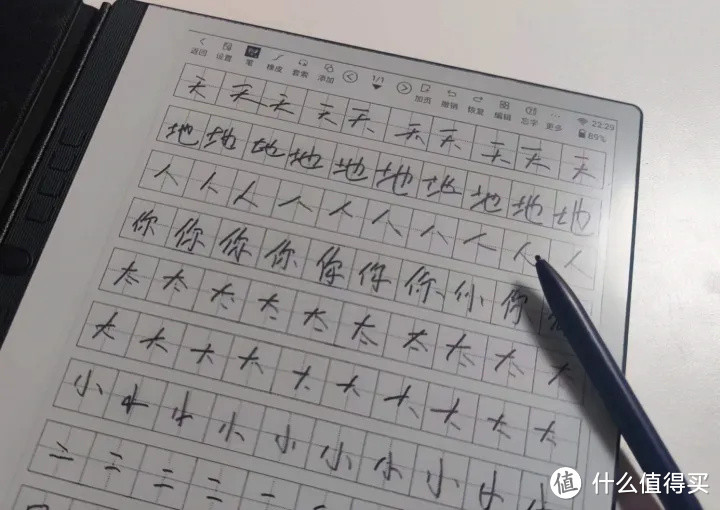 返回 设置 笔 橡皮 套索 添加 1/1 加页 撤销 恢复 编辑 忘字 更多 22:29 89%
天天天天天天天天天天
地地地地地地地地地地
人人人人人人人人人人
你你你你你你你你你
太太太太太太太太太太
大大大大大大大大大大
小小小小小小小小小小
二二二二
值 什么值得买